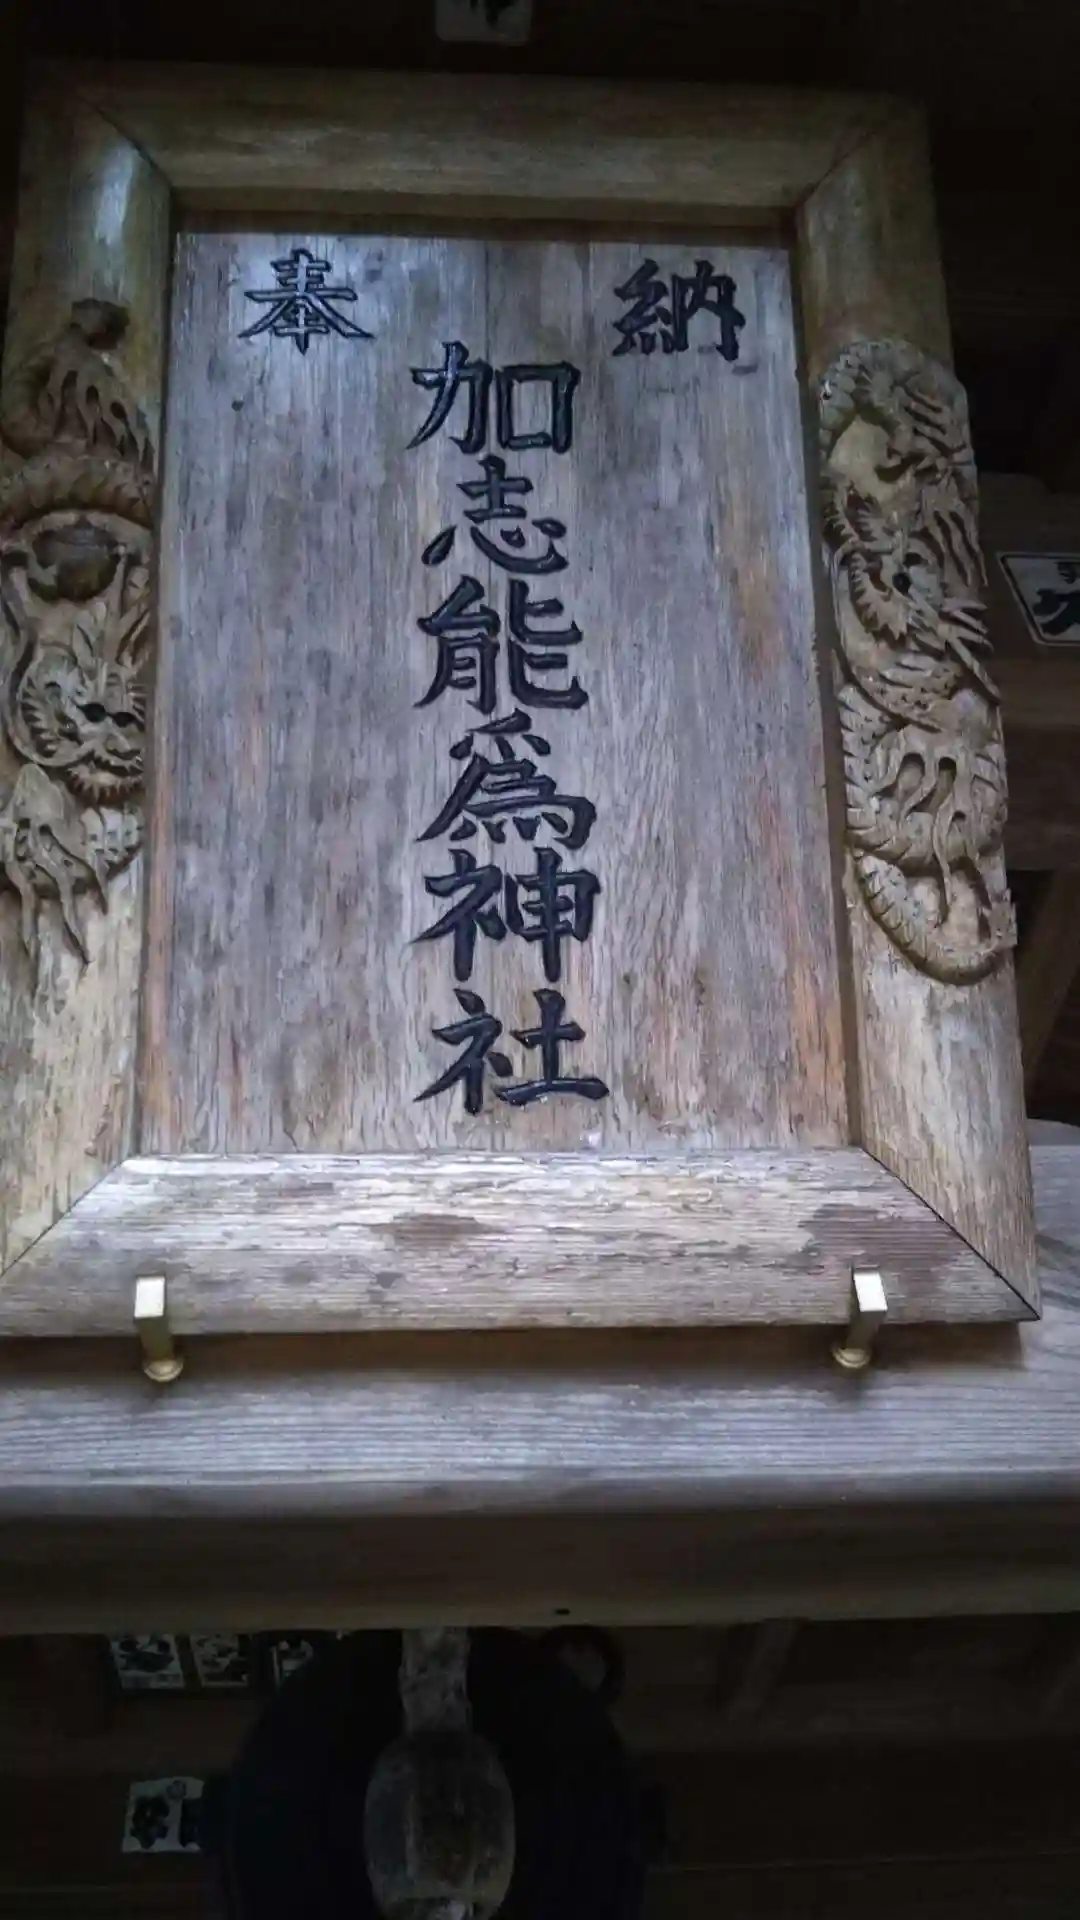 奉 納
加志能爲神社